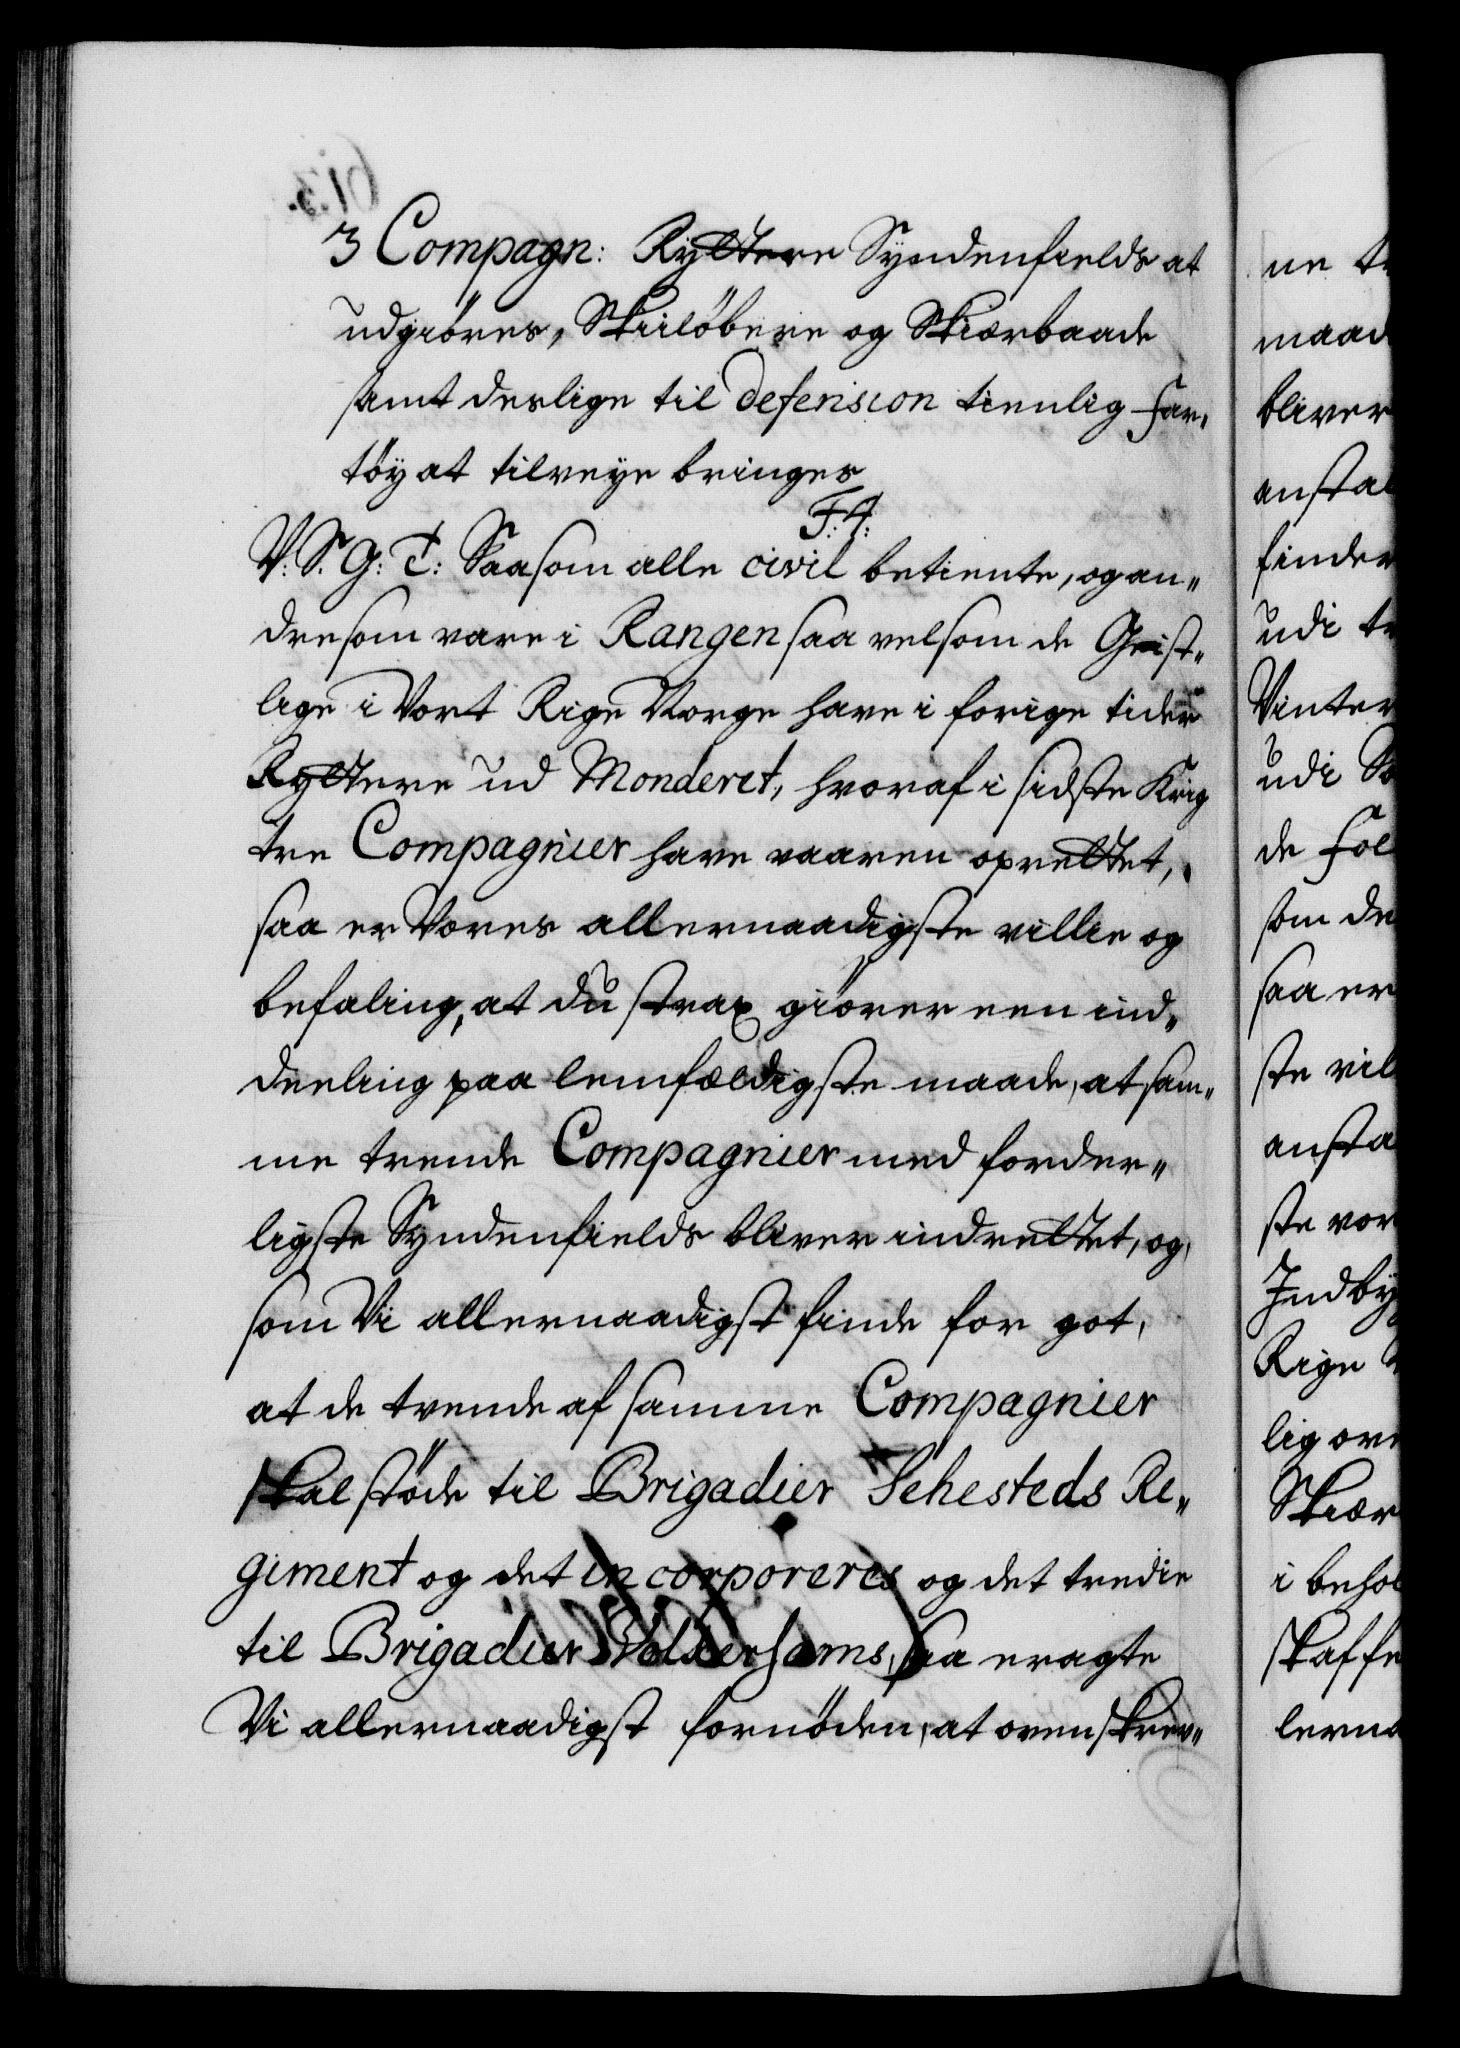 3 Compagn: Ryttere Syndenfields at
udgiöres, Skiilöbere og Skiærbaade
samt deslige til defension tienlig Far„
töy at tilveye bringes
F: 4:
V: S. G: T: Saasom alle civil betiente, og an„
dre som vare i Rangen saa velsom de Geist„
lige i Vort Rige Norge have i forige tider
Ryttere ud Monderet, hvoraf i sidste Krig
tre Compagnier have vaaren oprettet,
saa er Vores allernaadigste villie og
befaling, at du strax giörer een ind„
deeling paa lemfældigste maade, at sam„
me trende Compagnier med forder„
ligste Syndenfields bliver indrettet, og,
som Vi allernaadigst finde for got,
at de tvende af samme Compagnier
skal stöde til Brigadier Sehesteds Re„
giment og det incorporeres og det tredie
til Brigadier Wolkersams, saa eragte
Vi allernaadigst fornöden, at ovenskrev„
ne
maad
bliver
anstal
finder
udi
Vinter
udi
de Fol
som de
saa er
ste vil
ansta
ste vor
Indby
Rige
lig
Skiær
i behol
skaffe
lerna